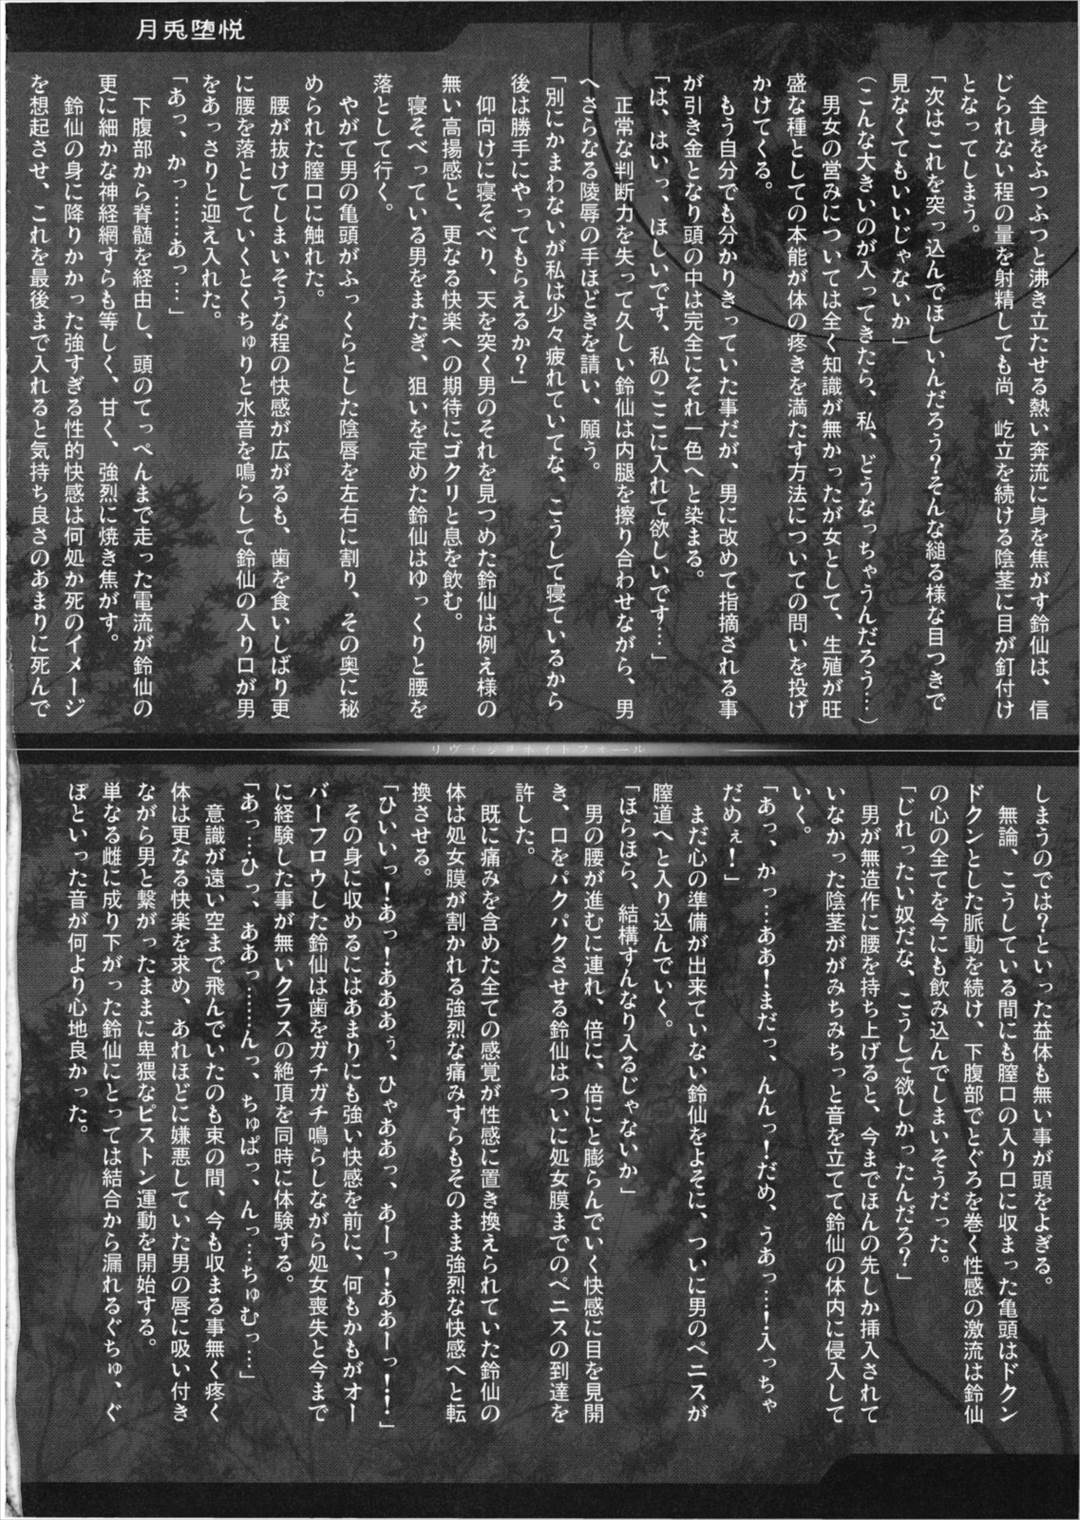 月兎堕悦
　全身をふつふつと沸き立たせる熱い奔流に身を焦がす鈴仙は、信
じられない程の量を射精しても尚、屹立を続ける陰茎に目が釘付け
となってしまう。
「次はこれを突っ込んでほしいんだろう？そんな縋る様な目つきで
見なくてもいいじゃないか」
（こんな大きいのが入ってきたら、私、どうなっちゃうんだろう…）
　男女の営みについては全く知識が無かったが女として、生殖が旺
盛な種としての本能が体の疼きを満たす方法についての問いを投げ
かけてくる。
　もう自分でも分かりきっていた事だが、男に改めて指摘される事
が引き金となり頭の中は完全にそれ一色へと染まる。
「は、はいっ、ほしいです、私のここに入れて欲しいです…」
　正常な判断力を失って久しい鈴仙は内腿を擦り合わせながら、男
へさらなる陵辱の手ほどきを請い、願う。
「別にかまわないが私は少々疲れていてな、こうして寝ているから
後は勝手にやってもらえるか？」
　仰向けに寝そべり、天を突く男のそれを見つめた鈴仙は例え様の
無い高揚感と、更なる快楽への期待にゴクリと息を飲む。
　寝そべっている男をまたぎ、狙いを定めた鈴仙はゆっくりと腰を
落として行く。
　やがて男の亀頭がふっくらとした陰唇を左右に割り、その奥に秘
められた膣口に触れた。
　腰が抜けてしまいそうな程の快感が広がるも、歯を食いしばり更
に腰を落としていくとくちゅりと水音を鳴らして鈴仙の入り口が男
をあっさりと迎え入れた。
「あっ、かっ……あっ…」
　下腹部から脊髄を経由し、頭のてっぺんまで走った電流が鈴仙の
更に細かな神経網すらも等しく、甘く、強烈に焼き焦がす。
　鈴仙の身に降りかかった強すぎる性的快感は何処か死のイメージ
を想起させ、これを最後まで入れると気持ち良さのあまりに死んで
しまうのでは？といった益体も無い事が頭をよぎる。
　無論、こうしている間にも膣口の入り口に収まった亀頭はドクン
ドクンとした脈動を続け、下腹部でとぐろを巻く性感の激流は鈴仙
の心の全てを今にも飲み込んでしまいそうだった。
「じれったい奴だな、こうして欲しかったんだろ？」
　男が無造作に腰を持ち上げると、今までほんの先しか挿入されて
いなかった陰茎ががみちみちっと音を立てて鈴仙の体内に侵入して
いく。
「あっ、かっ…ああ！まだっ、んんっ！だめ、うあっ…！入っちゃ
だめぇ！」
　まだ心の準備が出来ていない鈴仙をよそに、ついに男のペニスが
膣道へと入り込んでいく。
「ほらほら、結構すんなり入るじゃないか」
　男の腰が進むに連れ、倍に、倍にと膨らんでいく快感に目を見開
き、口をパクパクさせる鈴仙はついに処女膜までのペニスの到達を
許した。
　既に痛みを含めた全ての感覚が性感に置き換えられていた鈴仙の
体は処女膜が割かれる強烈な痛みすらもそのまま強烈な快感へと転
換させる。
「ひいいっ！あっ！あああぅ、ひゃああっ、あーっ！ああーっ！！」
　その身に収めるにはあまりにも強い快感を前に、何もかもがオー
バーフロウした鈴仙は歯をガチガチ鳴らしながら処女喪失と今まで
に経験した事が無いクラスの絶頂を同時に体験する。
「あっ…ひっ、ああっ……んっ、ちゅぱっ、んっ…ちゅむっ…」
　意識が遠い空まで飛んでいたのも束の間、今も収まる事無く疼く
体は更なる快楽を求め、あれほどに嫌悪していた男の唇に吸い付き
ながら男と繋がったままに卑猥なピストン運動を開始する。
　単なる雌に成り下がった鈴仙にとっては結合から漏れるぐちゅ、ぐ
ぽといった音が何より心地良かった。